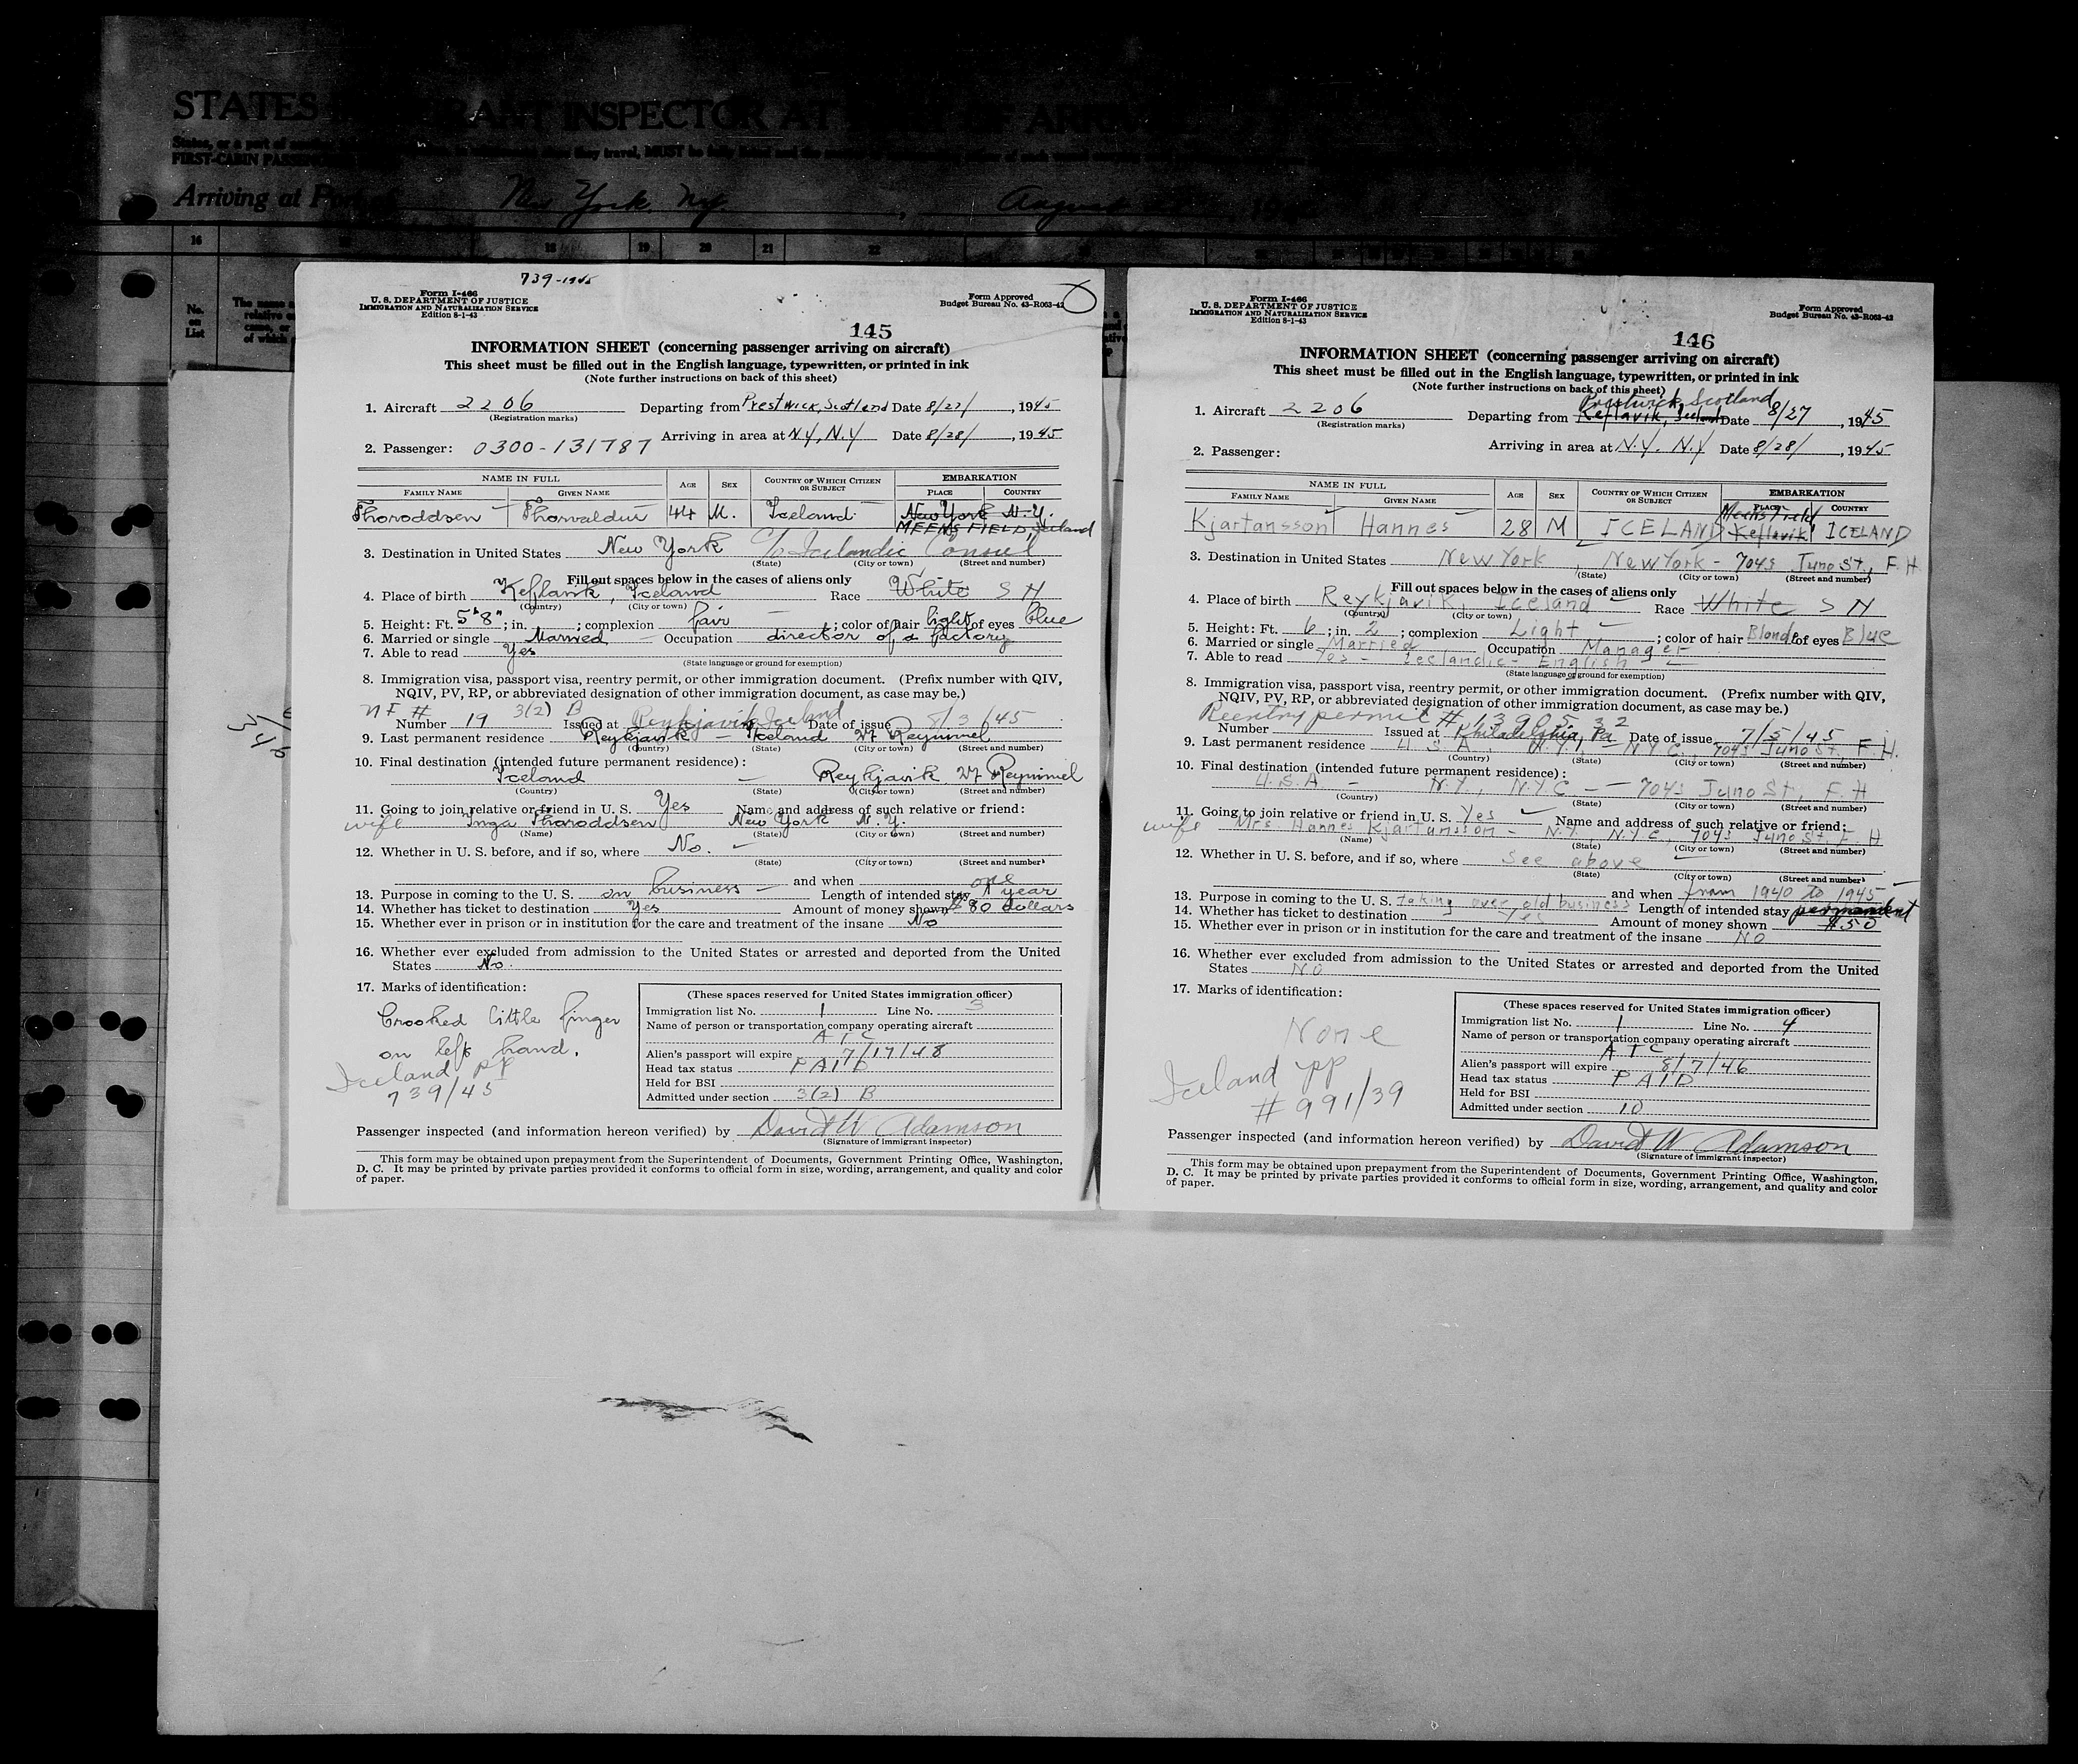 STATES IMMIGRANT INSPECTOR AT PORT OF ARRIVAL
FIRST-CABIN PASSENGERS
Arriving at Port of New York, Ny. , August
16 18 19 20 21 22
No. on List
739-1945
Form I-466
U. S. DEPARTMENT OF JUSTICE
IMMIGRATION AND NATURALIZATION SERVICE
Edition 8-1-43
Form Approved
Budget Bureau No. 43-R063-42
145
INFORMATION SHEET (concerning passenger arriving on aircraft)
This sheet must be filled out in the English language, typewritten, or printed in ink
(Note further instructions on back of this sheet)
1. Aircraft 2206 Departing from Prestwick, Scotland Date 8/27/, 1945
(Registration marks)
2. Passenger: 0300-131787 Arriving in area at N.Y, N.Y Date 8/28/, 1945
NAME IN FULL AGE SEX COUNTRY OF WHICH CITIZEN OR SUBJECT EMBARKATION
FAMILY NAME GIVEN NAME PLACE COUNTRY
Thoroddsen Thorvaldur 44 M. Iceland New York N.Y.
MEEKS FIELD, Iceland
3. Destination in United States New York C/o Icelandic Consul
(State) (City or town) (Street and number)
Fill out spaces below in the cases of aliens only
4. Place of birth Keflavik, Iceland Race White S H
(Country) (City or town)
5. Height: Ft. 5'8"; in. ; complexion fair ; color of hair light of eyes blue
6. Married or single Married Occupation director of a factory
7. Able to read Yes
(State language or ground for exemption)
8. Immigration visa, passport visa, reentry permit, or other immigration document. (Prefix number with QIV,
NQIV, PV, RP, or abbreviated designation of other immigration document, as case may be.)
3(2) B
Number 19 Issued at Reykjavik, Iceland Date of issue 8/3/45
9. Last permanent residence Reykjavik — Iceland 27 Reynimel
(Country) (State) (City or town) (Street and number)
10. Final destination (intended future permanent residence):
Iceland — Reykjavik 27 Reynimel
(Country) (State) (City or town) (Street and number)
11. Going to join relative or friend in U. S. Yes Name and address of such relative or friend:
wife Inga Thoroddsen New York N.Y.
(Name) (State) (City or town) (Street and number)
12. Whether in U. S. before, and if so, where No.
(State) (City or town) (Street and number)
and when
13. Purpose in coming to the U. S. on business Length of intended stay one year
14. Whether has ticket to destination Yes Amount of money shown $80 dollars
15. Whether ever in prison or in institution for the care and treatment of the insane No
16. Whether ever excluded from admission to the United States or arrested and deported from the United
States No.
17. Marks of identification:
Crooked little finger
on left hand.
Iceland pp
739/45
(These spaces reserved for United States immigration officer)
Immigration list No. 1 Line No. 3
Name of person or transportation company operating aircraft
ATC
Alien's passport will expire 7/17/48
Head tax status PAID
Held for BSI
Admitted under section 3(2) B
Passenger inspected (and information hereon verified) by David W Adamson
(Signature of immigrant inspector)
This form may be obtained upon prepayment from the Superintendent of Documents, Government Printing Office, Washington,
D. C. It may be printed by private parties provided it conforms to official form in size, wording, arrangement, and quality and color
of paper.
Form I-466
U. S. DEPARTMENT OF JUSTICE
IMMIGRATION AND NATURALIZATION SERVICE
Edition 8-1-43
Form Approved
Budget Bureau No. 43-R063-42
146
INFORMATION SHEET (concerning passenger arriving on aircraft)
This sheet must be filled out in the English language, typewritten, or printed in ink
(Note further instructions on back of this sheet)
Prestwick, Scotland
1. Aircraft 2206 Departing from Keflavik, Iceland Date 8/27, 1945
(Registration marks)
Arriving in area at N.Y. N.Y Date 8/28/, 1945
2. Passenger:
NAME IN FULL AGE SEX COUNTRY OF WHICH CITIZEN OR SUBJECT EMBARKATION
FAMILY NAME GIVEN NAME PLACE COUNTRY
Meeks Field
Kjartansson Hannes 28 M ICELAND Keflavik ICELAND
3. Destination in United States New York, New York - 7043 Juno St., F.H.
(State) (City or town) (Street and number)
Fill out spaces below in the cases of aliens only
4. Place of birth Reykjavik, Iceland Race White S H
(Country) (City or town)
5. Height: Ft. 6; in. 2; complexion Light; color of hair Blond of eyes Blue
6. Married or single Married Occupation Manager
7. Able to read Yes - Icelandic - English
(State language or ground for exemption)
8. Immigration visa, passport visa, reentry permit, or other immigration document. (Prefix number with QIV,
NQIV, PV, RP, or abbreviated designation of other immigration document, as case may be.)
Reentry permit # 1390532
Number Issued at Philadelphia, Pa Date of issue 7/5/45
9. Last permanent residence U.S.A., N.Y., - N.Y.C., 7043 Juno St., F.H.
(Country) (State) (City or town) (Street and number)
10. Final destination (intended future permanent residence):
U.S.A - N.Y., N.Y.C - - 7043 Juno St, F.H
(Country) (State) (City or town) (Street and number)
11. Going to join relative or friend in U. S. Yes Name and address of such relative or friend:
wife Mrs. Hannes Kjartansson - N.Y., N.Y.C., 7043 Juno St. F.H
(Name) (State) (City or town) (Street and number)
12. Whether in U. S. before, and if so, where See above
(State) (City or town) (Street and number)
and when from 1940 to 1945
13. Purpose in coming to the U. S. taking over old business Length of intended stay permanent
14. Whether has ticket to destination Yes Amount of money shown $50
15. Whether ever in prison or in institution for the care and treatment of the insane NO
16. Whether ever excluded from admission to the United States or arrested and deported from the United
States NO
17. Marks of identification:
None
Iceland pp
# 991/39
(These spaces reserved for United States immigration officer)
Immigration list No. 1 Line No. 4
Name of person or transportation company operating aircraft
ATC
Alien's passport will expire 8/7/46
Head tax status PAID
Held for BSI
Admitted under section 10
Passenger inspected (and information hereon verified) by David W Adamson
(Signature of immigrant inspector)
This form may be obtained upon prepayment from the Superintendent of Documents, Government Printing Office, Washington,
D. C. It may be printed by private parties provided it conforms to official form in size, wording, arrangement, and quality and color
of paper.